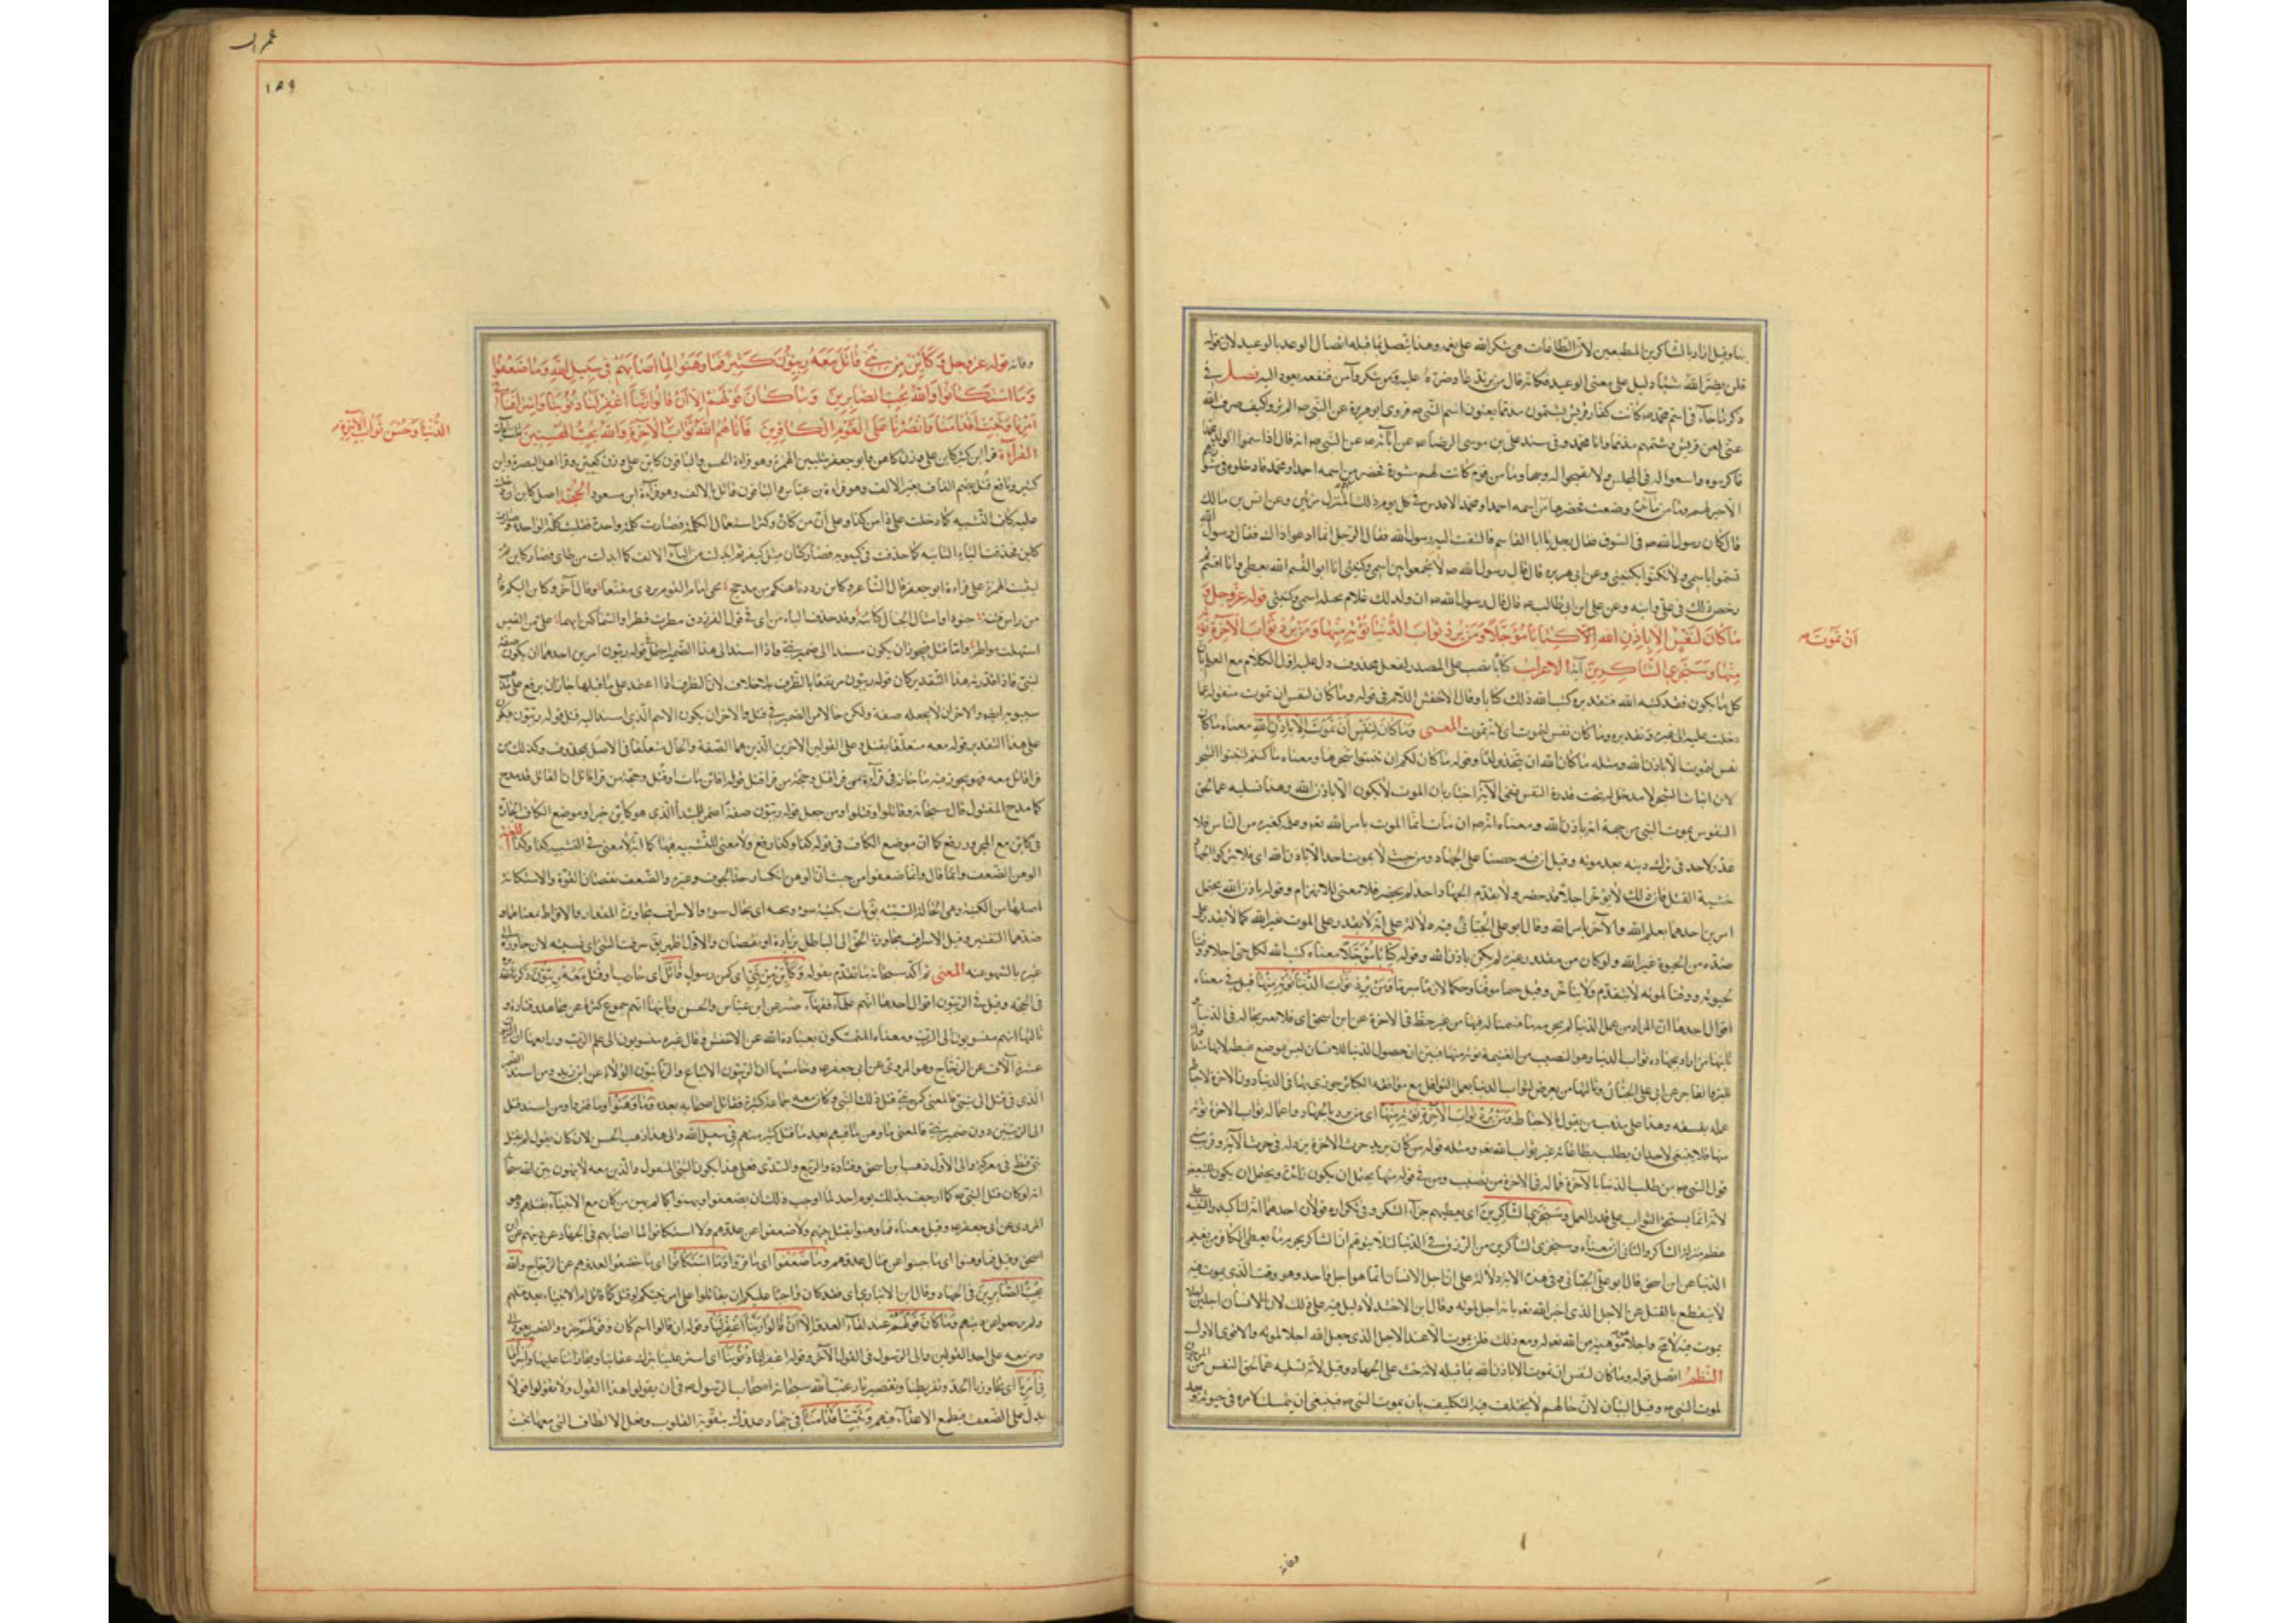 بها وقيل اراد بالشاكرين المطيعين لان الطاعات هى شكر الله على نعمه وهذا يتصل بما قبله اتصال الوعد بالوعيد لان قوله
فلن يضر الله شيئا دليل على معنى الوعيد فكانه قال من يرتد عاد ضرره عليه ومن شكر وآمن فنفعه يعود اليه فصل فى
ذكر ما جاء فى اسم محمد ص كانت كفار قريش يشتمون مذمما يعنون اسم النبى ص فروى ابو هريرة عن النبى ص الم تروا كيف صرف الله
عنى لعن قريش وشتمهم مذمما وانا محمد وفى مسند على بن موسى الرضا ص عن آبائه ص عن النبى ص انه قال اذا سميتم الولد محمدا
فاكرموه واوسعوا له فى المجلس ولا تقبحوا له وجها وما من قوم كانت لهم مشورة فحضر من اسمه احمد او محمد فادخلوه فى مشورتهم
الا خير لهم وما من مائدة وضعت فحضرها من اسمه احمد او محمد الا قدس فى كل يوم ذلك المنزل مرتين وعن انس بن مالك
قال كان رسول الله ص فى السوق فقال رجل يا ابا القاسم فالتفت اليه رسول الله فقال الرجل انما ادعو ذاك فقال رسول الله
تسموا باسمى ولا تكنوا بكنيتى وعن ابى هريره قال قال رسول الله ص لا تجمعوا بين اسمى وكنيتى انا ابو القسم الله يعطى وانا اقسم ثم
رخص ذلك فى على وابنه وعن على بن ابى طالب ص قال قال رسول الله ص ان ولد لك غلام نحله اسمى وكنيتى قوله عز وجل و
ما كان لنفس الا باذن الله كتابا مؤجلا ومن يرد ثواب الدنيا نؤته منها ومن يرد ثواب الآخرة نؤته
ان تموت
منها وسنجزى الشاكرين آية الاعراب كتابا نصب على المصدر لفعل محذوف دل عليه اول الكلام مع العلم بان
كل ما يكون فقد كتبه الله فتقديره كتب الله ذلك كتابا وقال الاخفش اللام فى قوله وما كان لنفس ان تموت منقولة عما
دخلت عليه الى غيره وتقديره وما كان نفس لتموت اى لان تموت المعنى وما كان لنفس ان تموت الا باذن الله معناه ما كان
نفس لتموت الا باذن الله ومثله ما كان لله ان يتخذ من ولد وقوله ما كان لكم ان تنبتوا شجرها ومعناه ما كنتم لتنبتوا الشجر
لان انبات الشجر لا مدخل له تحت قدرة النفس فمعنى الآية اخبار بان الموت لا يكون الا باذن الله وهذا تسلية عما لحق
النفوس بموت النبى من جهة انه باذن الله ومعناه انه ص ان مات فانما الموت بامر الله نعم وعلى كغيره من الناس فلا
عذر لاحد فى ترك دينه بعد موته وقيل ان فيه حضا على الجهاد ومن حيث لا يموت احد الا باذن الله اى فلا يتركوا الجهاد
خشية القتل فان ذلك لا يؤخر اجلا قد حضر ولا يقدم الجهاد اجلا لم يحضر فلا معنى للانهزام وقوله باذن الله يحتمل
امرين احدهما بعلم الله والآخر بامر الله وقال ابو على الجبائى وفيه دلالة على انه لا يقدر على الموت غير الله كما لا يقدر على
ضده من الحيوة غير الله ولو كان من مقدور غيره لم يكن باذن الله وقوله كتابا مؤجلا معناه كتب الله لكل حى اجلا ووقتا
لحيوته ووقتا لموته لا يتقدم ولا يتاخر وقيل حتما موقتا وحكما لازما مبرما ومن يرد ثواب الدنيا نؤته منها قيل فى معناه
اقوال احدها ان المراد من عمل للدنيا لم نحرمه ما قسمنا له فيها من غير حظ فى الآخرة عن ابن اسحق اى فلا تغتر بحاله فى الدنيا و
ثانيها من اراد بجهاده ثواب الدنيا وهو النصيب من الغنيمة نؤته منها فبين ان حصول الدنيا للانسان ليس بموضع غبطة لانها مبذولة
للبر والفاجر عن ابى على الجبائى وثالثها من يعرض لثواب الدنيا بعمل النوافل مع مواقعة الكبائر جوزى بها فى الدنيا دون الآخرة لاحباط
عمله بفسقه وهذا على مذهب من يقول بالاحباط ومن يرد ثواب الآخرة نؤته منها اى من يرد بالجهاد واعماله ثواب الآخرة نؤته
منها فلا ينبغى لاحد ان يطلب بطاعاته غير ثواب الله نعم ومثله قوله من كان يريد حرث الآخرة نزد له فى حرثه الآية وقريب من
قول النبى ص من طلب الدنيا بالآخرة فما له فى الآخرة من نصيب ومن فى قوله منها يحتمل ان يكون زائدة ويحتمل ان يكون للتبعيض
لانه انما يستحق الثواب على قدر العمل وسنجزى الشاكرين اى نعطيهم جزاء الشكر وفى تكراره قولان احدهما انه للتاكيد والتنبيه على
عظم منزلة الشاكر والثانى ان معناه وسنجزى الشاكرين من الرزق فى الدنيا لئلا يتوهم ان الشاكر يحرم ما يعطى الكافر من نعيم
الدنيا عن ابن اسحق قال ابو على الجبائى وفى هذه الآية دلالة على ان اجل الانسان انما هو اجل واحد وهو وقت الذى يموت فيه
لا ينقطع بالقتل عن الاجل الذى اخبر الله نعم بانه اجل لموته وقال ابن الاخشيد لا دليل فيه على ذلك لان للانسان اجلين اجلا
يموت فيه لا محه واجلا موهبة من الله نعم له ومع ذلك فلن يموت الا عند الاجل الذى جعل الله اجلا لموته والاقوى الاول
النظم اتصل قوله وما كان لنفس ان تموت الا باذن الله بما قبله لانه حث على الجهاد وقيل لانه تسلية عما لحق النفس من
لموت النبى ص وقيل البيان لان حالهم لا يختلف فيه التكليف بان يموت النبى ص فينبغى ان يتمسك بامره فى حيوته وبعد
وفاته
عمران
١٥٩
وفاته قوله عز وجل وكاين من نبى قاتل معه ربيون كثير فما وهنوا لما اصابهم فى سبيل الله وما ضعفوا
وما استكانوا والله يحب الصابرين وما كان قولهم الا ان قالوا ربنا اغفر لنا ذنوبنا واسرافنا فى
امرنا وثبت اقدامنا وانصرنا على القوم الكافرين فآتاهم الله ثواب الآخرة والله يحب المحسنين ثلث آيات
الدنيا وحسن ثواب الآخرة
القراءة قرا ابن كثير كاين على وزن كاعن وابو جعفر بتليين الهمزة وهو قراءة الحسن والباقون كاين على وزن كعين وقرا اهل البصرة وابن
كثير ونافع قتل بضم القاف بغير الالف وهو قراءة بن عباس والباقون قاتل بالالف وهو قراءة ابن مسعود الحجة اصل كاين اى دخلت
عليه كاف التشبيه كما دخلت على ذا من كذا وعلى ان من كان وكثر استعمال الكلمة فصارت كلمة واحدة فقلب قلب الواحدة فصارت
كاين فحذفت الياء الثانيه كما حذفت فى كينونه فصار كيان مثل كيعن ثم ابدلت من الياء الالف كما ابدلت من طاى فصار كاين ثم
لينت الهمزة على قراءة ابو جعفر قال الشاعر وكاين رددنا عنكم من مدجج يجى امام القوم يردى مقنعا وقال آخر وكاين اليكم قاد
من راس فتنة جنودا وامثال الجبال كتائبه وقد حذف الياء من اى فى قول الفرزدق منظرت نصرا والسماكين ايهما على من الغيث
استهلت مواطره واما قتل فيجوز ان يكون مسندا الى ضمير نبى واذا اسند الى هذا الضمير احتمل قوله ربيون امرين احدهما ان يكون صفة
لنبى فاذا قدرته هذا التقدير كان قوله ربيون مرتفعا بالظرف بلا خلاف لان الظرف اذا اعتمد على ما قبلها جاز ان يرفع على مذهب
سيبويه ايضا والآخر ان لا يجعله صفة ولكن حالا من الضمير فى قتل والآخر ان يكون الاسم الذى اسند اليه قتل قوله ربيون فيكون
على هذا التقدير قوله معه متعلقا بقتل وعلى القولين الآخرين الذين هما الصفة والحال متعلقا فى الاصل بمحذوف وكذلك من
قرا قاتل معه فهو يجوز فيه ما جاز فى قراءة من قرا قتل وحجة من قرا قتل قوله افان مات او قتل وحجة من قرا قاتل ان القاتل قد مدح
كما مدح المقتول قال سبحانه وقاتلوا وقتلوا ومن جعل قوله ربيون صفة اضمر للمبتدا الذى هو كاين خبرا وموضع الكاف الجارة
فى كاين مع المجرور رفع كما ان موضع الكاف فى قوله كذا وكذا رفع ولا معنى للتشبيه فيها كما انه لا معنى للتشبيه فى كذا وكذا اللغة
الوهن الضعف وانما قال وما ضعفوا من حيث ان الوهن انكسار حد الخوف وغيره والضعف نقصان القوة والاستكانة
اصلها من الكينة وهى الحالة السيئة يقال بات بكينة سوء وبحيبة اى بحال سوء والاسراف مجاوزة المقدار والافراط بمعناه و
ضدهما التقتير وقيل الاسراف مجاوزة الحق الى الباطل بزيادة او نقصان والاول اظهر يق سرفت الشئ اى نسيته لان جاوزه الى
غيره بالسهو عنه المعنى ثم اكد سبحانه ما تقدم بقوله وكاين من نبى اى كم من رسول قاتل اى حارب او قتل معه ربيون ذكرناه
فى الحجه وقيل فى الربيون اقوال احدها انهم علماء فقهاء صبر عن ابن عباس والحسن وثانيها انهم جموع كثيرة عن مجاهد وقتادة و
ثالثها انهم منسوبون الى الرب ومعناه المتمسكون بعبادة الله عن الاخفش وقال غيره منسوبون الى علم الرب ورابعها ان الربيون
عشرة آلاف عن الزجاج وهو المروى عن ابى جعفر ص وخامسها ان الربيون الاتباع والربانيون الولاة عن ابن زيد ومن اسند الضمير
الذى فى قتل الى نبى فالمعنى كم من نبى قتل ذلك النبى وكان معه جماعة كثيرة فقاتل اصحابه بعده فما وهنوا وما فتروا ومن اسند قتل
الى الربيين دون ضمير نبى فالمعنى ما وهن باقيهم بعد ما قتل كثير منهم فى سبيل الله والى هذا ذهب الحسن لانه كان يقول لم يقتل
نبى قط فى معركة والى الاول ذهب ابن اسحق وقتادة والربيع والسدى فعلى هذا يكون النبى المقتول والذين معه لا يهنون بين الله سبحانه
انه لو كان قتل النبى ص كما ارجف بذلك يوم احد لما اوجب ذلك ان يضعفوا ويهنوا كما لم يهن من كان مع الانبياء بقتلهم وهو
المروى عن ابى جعفر ص وقيل معناه فما وهنوا بقتل نبيهم ولا ضعفوا عن عدوهم ولا استكانوا لما اصابهم فى الجهاد عن دينهم عن ابن
اسحق وقيل فما وهنوا اى ما جبنوا عن قتال عدوهم وما ضعفوا اى ما فتروا وما استكانوا اى ما خضعوا لعدوهم عن الزجاج والله
يحب الصابرين فى الجهاد وقال ابن الانبارى اى فقد كان واجبا عليكم ان تقاتلوا على امر نبيكم لو قتل كما قاتل امم الانبياء بعد قتلهم
ولم يرجعوا عن دينهم وما كان قولهم عند لقاء العدو الا ان قالوا ربنا اغفر لنا وقوله ان قالوا اسم كان وقولهم خبره والضمير يعود الى النبى
ومن معه على احد القولين والى الربيون فى القول الآخر وقوله اغفر لنا ذنوبنا اى استر علينا بترك عقابنا ومجازاتنا عليها واسرافنا
فى امرنا اى تجاوزنا الحد وتفريطنا وتقصيرنا رغب الله سبحانه اصحاب الرسول ص فى ان يقولوا هذا القول ولا يقولوا قولا
يدل على الضعف فيطمع الاعداء فيهم وثبت اقدامنا فى جهاد عدوك بتقوية القلوب وفعل الالطاف التى معها تثبت